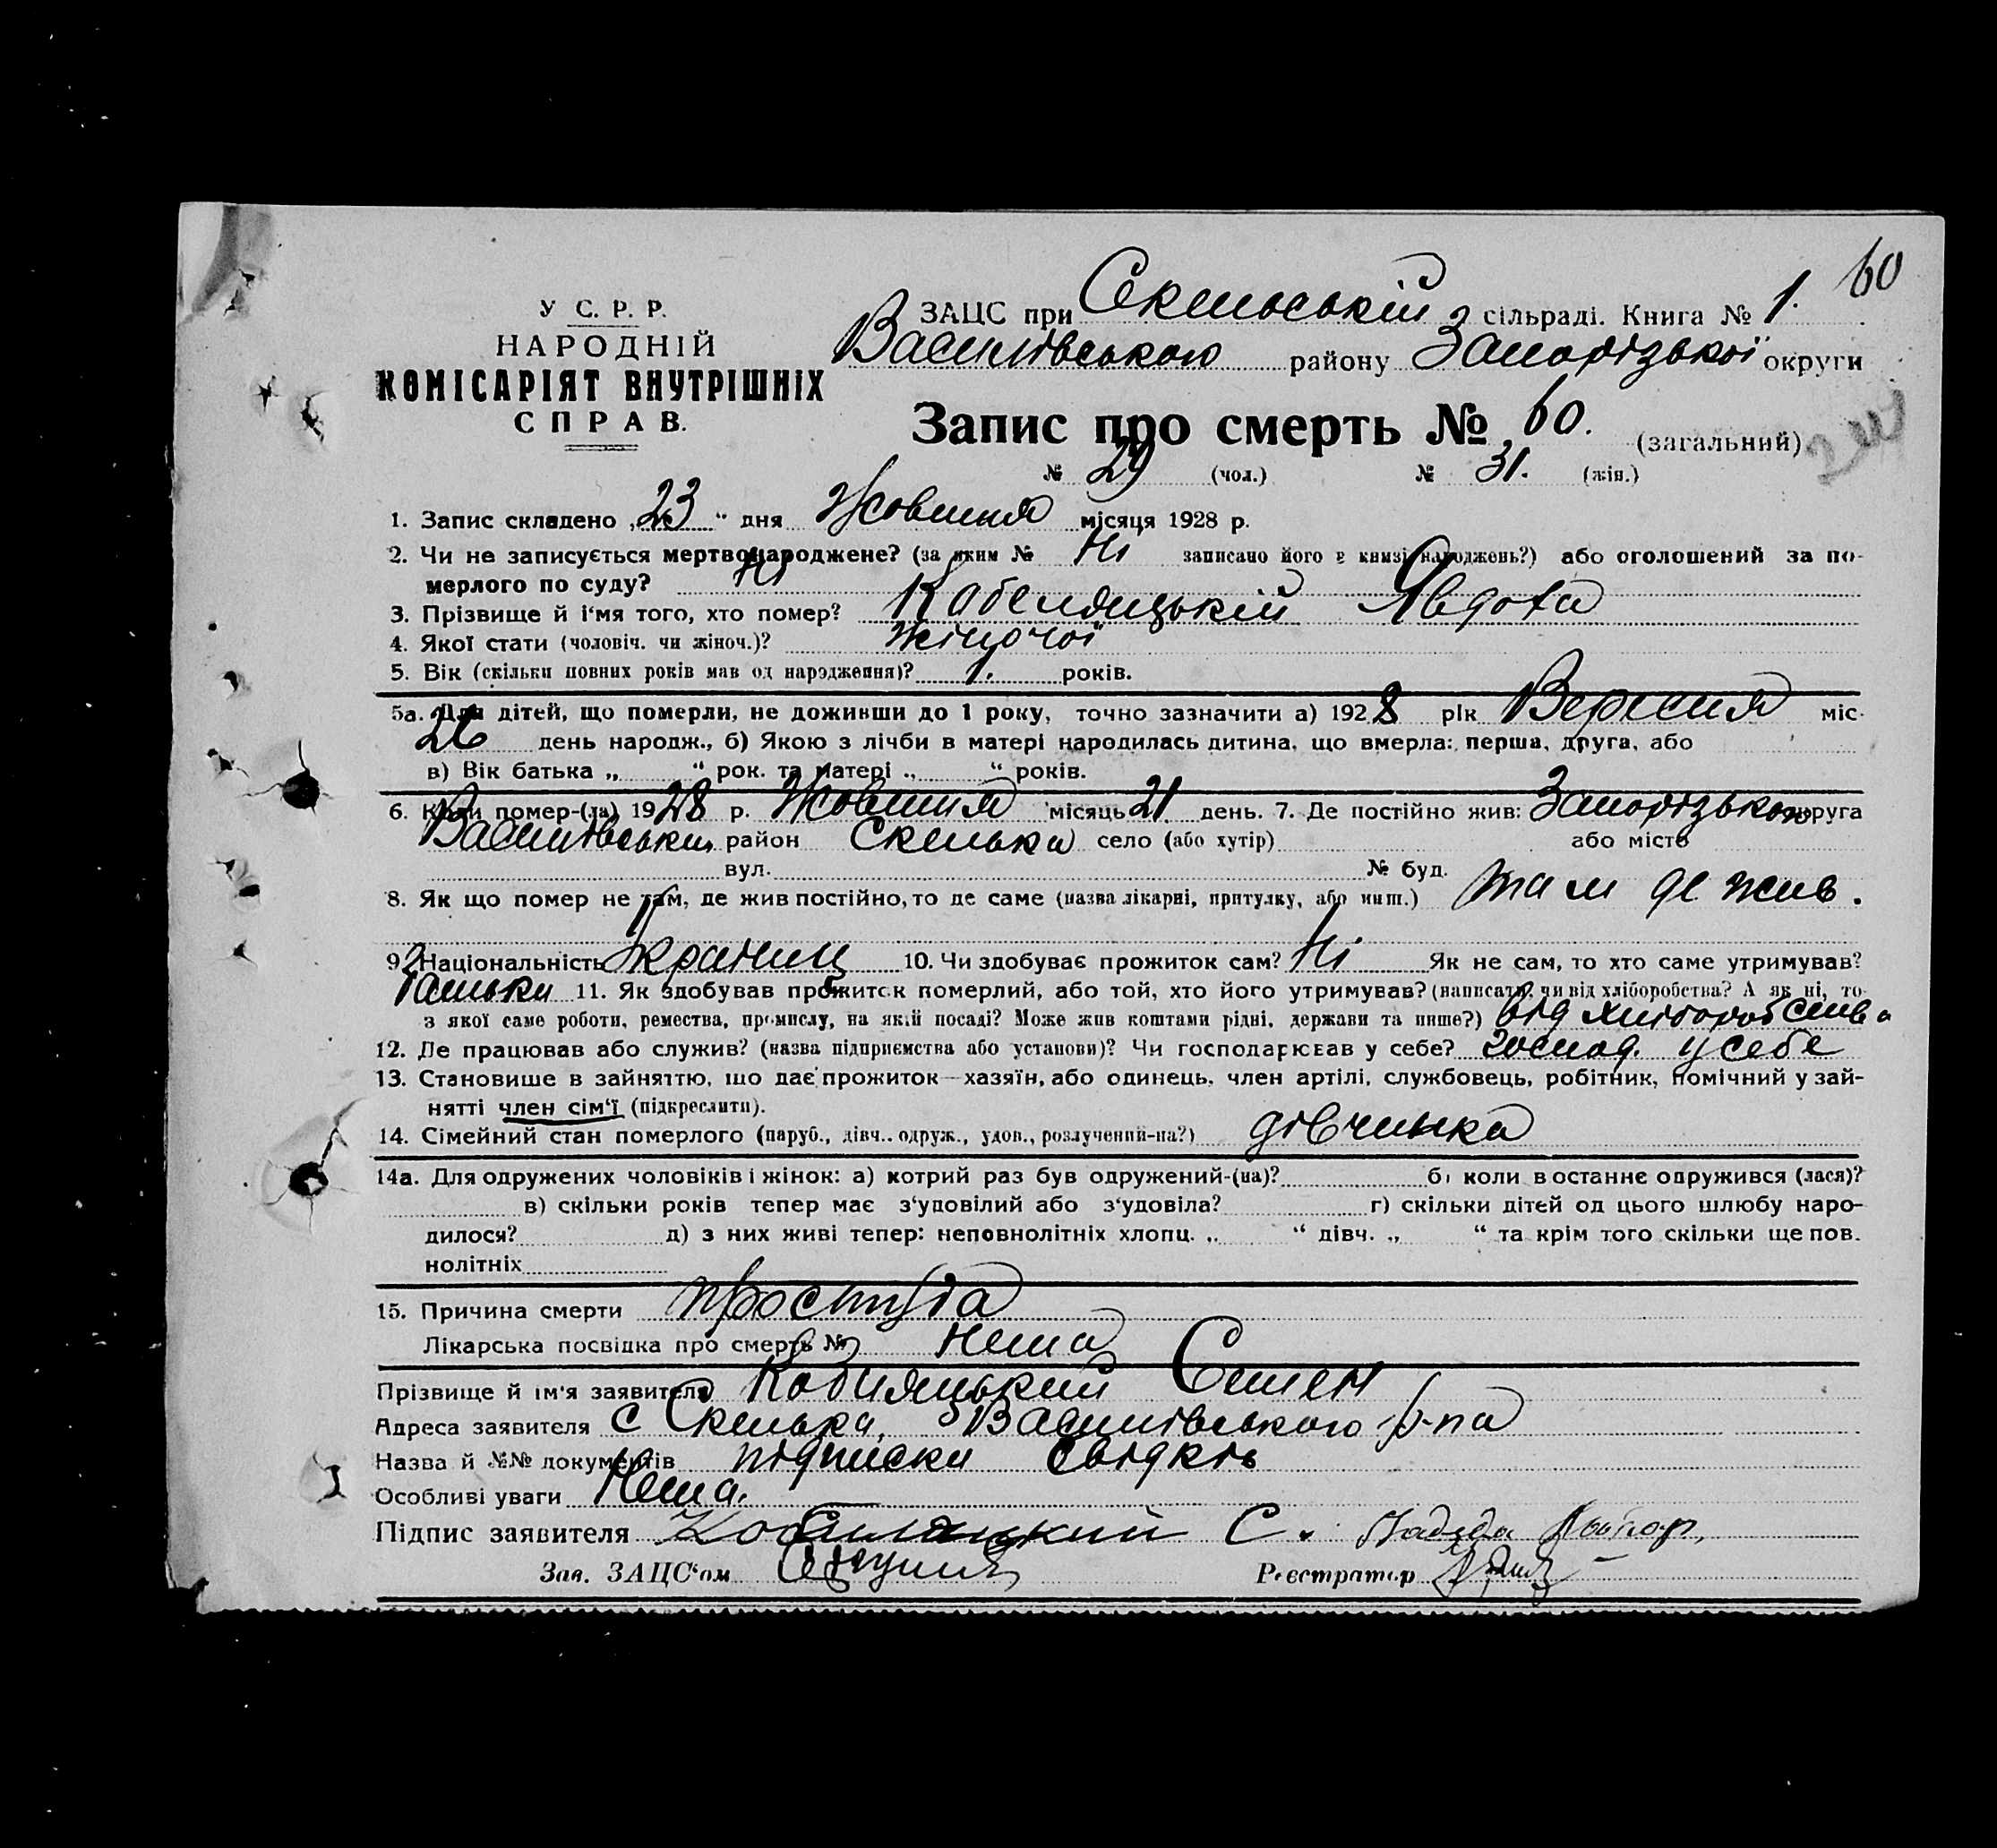 60
У С. Р. Р.
НАРОДНІЙ
КОМІСАРІЯТ ВНУТРІШНІХ
СПРАВ.
ЗАЦС при Скельській сільраді. Книга № 1.
Василівського району Запорізької округи
Запис про смерть № 60. (загальний)
№ 29 (чол.) № 31. (жін.)
1. Запис складено „23“ дня Жовтня місяця 1928 р.
2. Чи не записується мертвонароджене? (за яким № Ні записано його в книзі народжень?) або оголошений за по-
мерлого по суду? Ні
3. Прізвище й і'мя того, хто помер? Кобеляцькій Явдоха
4. Якої стати (чоловіч. чи жіноч.)? жіночої
5. Вік (скільки повних років мав од народження)? 1. років.
5а. Для дітей, що померли, не доживши до 1 року, точно зазначити а) 1928 рік Вересня міс.
26 день народж., б) Якою з лічби в матері народилась дитина, що вмерла: перша, друга, або
в) Вік батька „ “ рок. та матері „ “ років.
6. Коли помер-(ла) 1928 р. Жовтня місяць 21 день. 7. Де постійно жив: Запорізької округа
Василівськи район Скелька село (або хутір) або місто
вул. № буд.
8. Як що помер не там, де жив постійно, то де саме (назва лікарні, притулку, або инш.) там де жив.
9. Національність Українец 10. Чи здобуває прожиток сам? Ні Як не сам, то хто саме утримував?
Батьки 11. Як здобував прожиток померлий, або той, хто його утримував? (написати, чи від хліборобства? А як ні, то
з якої саме роботи, ремества, промислу, на якій посаді? Може жив коштами рідні, держави та инше?) від хліборобства
12. Де працював або служив? (назва підприємства або установи)? Чи господарював у себе? господ. у себе
13. Становише в зайняттю, що дає прожиток—хазяїн, або одинець, член артілі, службовець, робітник, помічний у зай-
нятті член сім'ї (підкреслити).
14. Сімейний стан померлого (паруб., дівч., одруж., удов., розлучений-на?) дівчинка
14а. Для одружених чоловіків і жінок: а) котрий раз був одружений-(на)? б) коли в останнє одружився (лася)?
в) скільки років тепер має з'удовілий або з'удовіла? г) скільки дітей од цього шлюбу наро-
дилося? д) з них живі тепер: неповнолітніх хлопц. „ “ дівч. „ “ та крім того скільки ще пов.
нолітніх
15. Причина смерти простуда
Лікарська посвідка про смерть № Нема
Прізвище й ім'я заявителя Кобиляцький Семен
Адреса заявителя с Скелька, Василівського р-на
Назва й №№ документів підписки свідків
Особливі уваги Нема.
Підпис заявителя Кобиляцкий С.
Зав. ЗАЦС'ом
Реєстратор